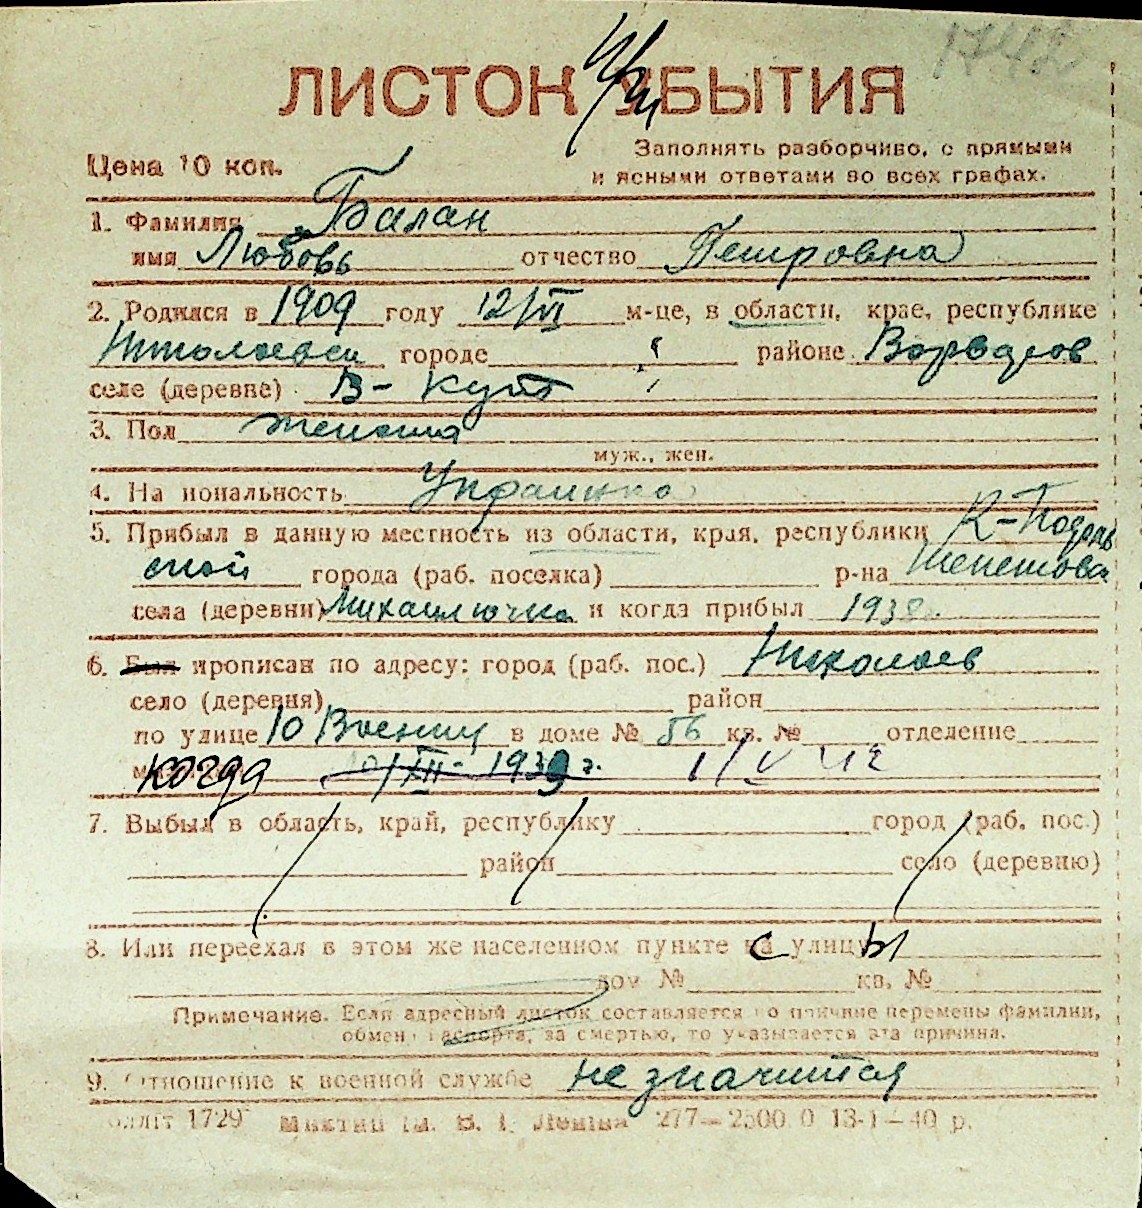 1742
ЛИСТОК УБЫТИЯ
При
Цена 10 коп.
Заполнять разборчиво, с прямыми
и ясными ответами во всех графах.
1. Фамилия Балан
имя Любовь отчество Петровна
2. Родился в 1909 году 12/VI м-це, в области, крае, республике
Николаевск городе районе Варваров
селе (деревне) В-Кут
3. Пол женский
муж., жен.
4. Национальность Украинка
5. Прибыл в данную местность из области, края, республики К-Подоль
ской города (раб. поселка) р-на Шепетовс
села (деревни) Михайлючка и когда прибыл 1938г.
6. Был прописан по адресу: город (раб. пос.) Николаев
село (деревня) район
по улице 10 Военну в доме № 56 кв. № отделение
когда 10/XII- 1939 г. 1/V 42
7. Выбыл в область, край, республику город (раб. пос.)
район село (деревню)
8. Или переехал в этом же населенном пункте с улицы
дом № кв. №
Примечание. Если адресный листок составляется по причине перемены фамилии,
обмена паспорта, за смертью, то указывается эта причина.
9. Отношение к военной службе не значится
1729 ім. В. І. Леніна 277—2500 0 13-1—40 р.